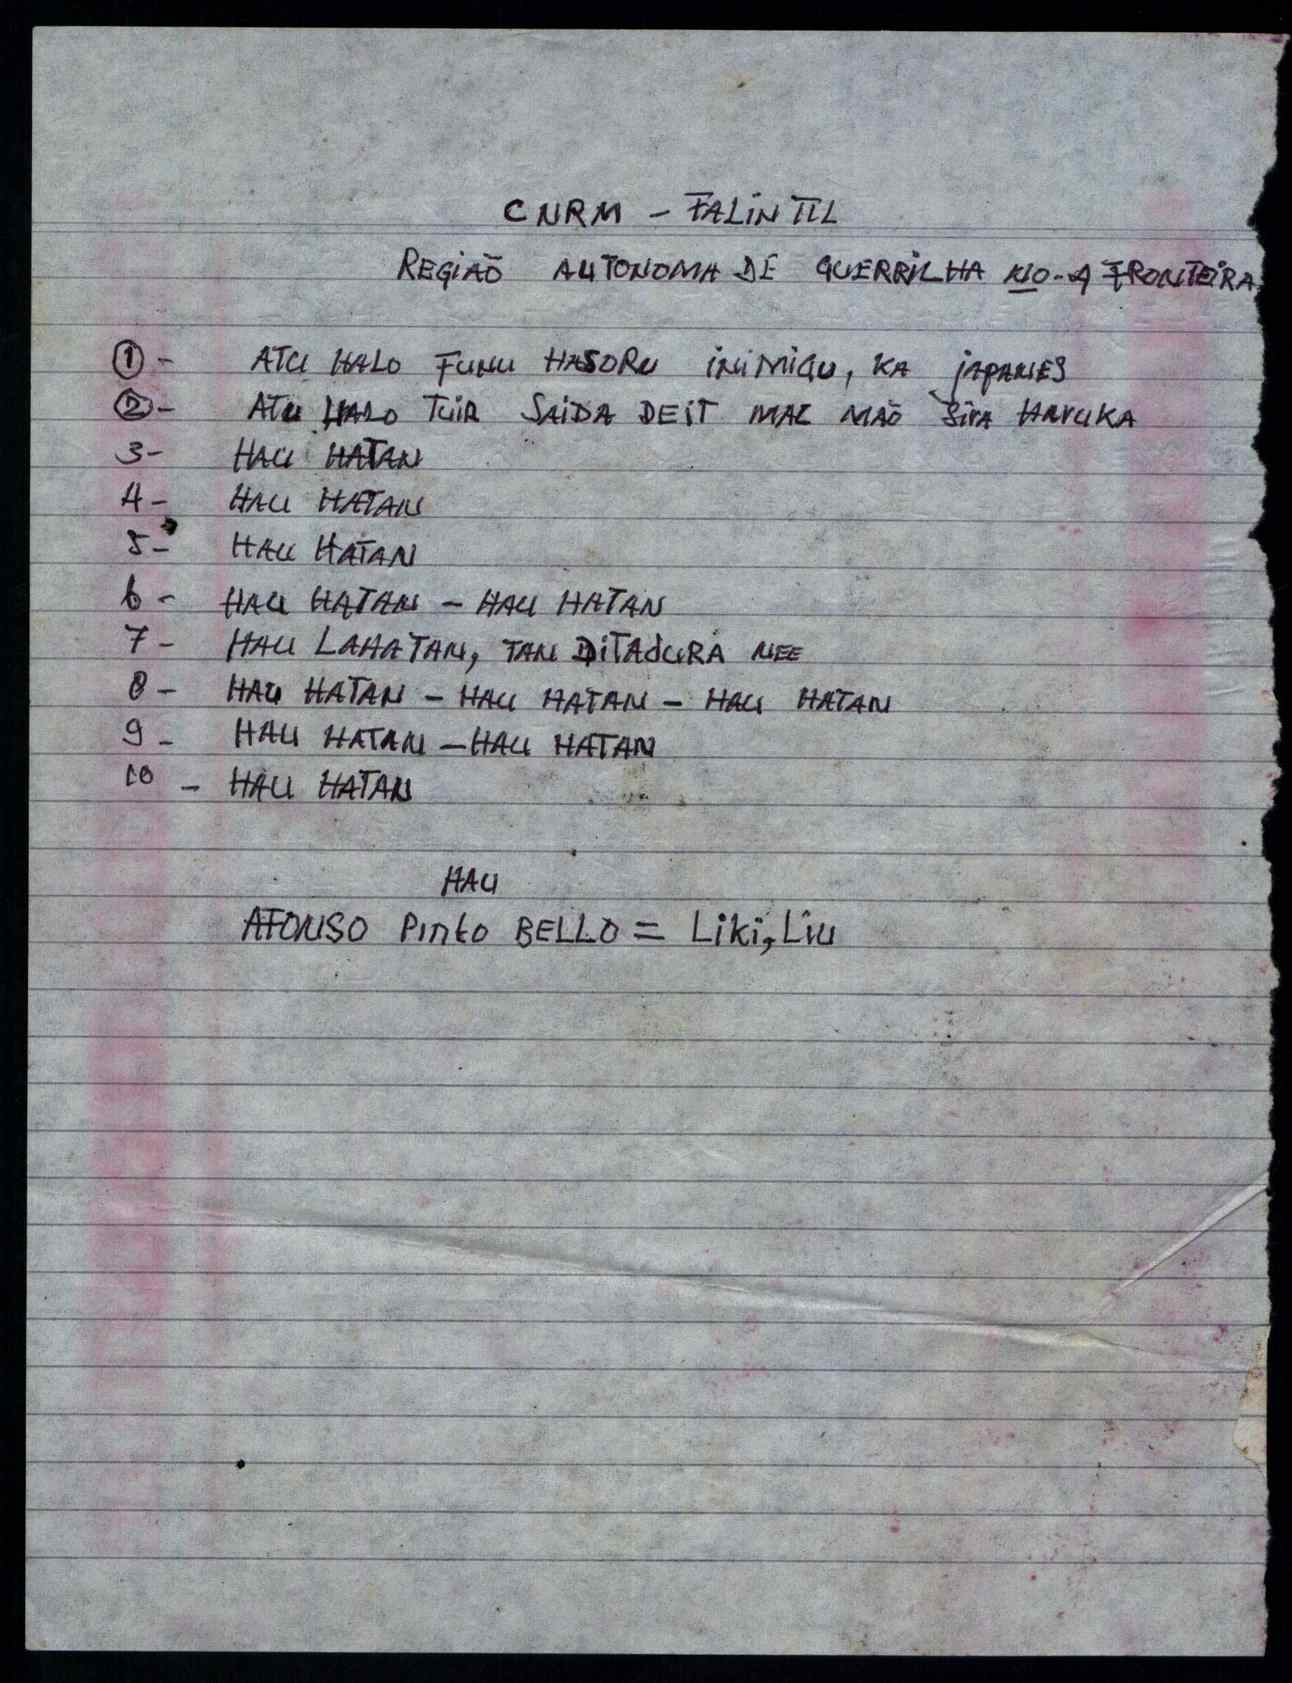 CNRM - FALINTIL
REGIAÕ AUTONOMA DE GUERRILHA NO-4 FRONTEIRA
① - ATU HALO FUNU HASORU INIMIGU, KA JAPANES
② - ATU HALO TUIR SAIDA DEIT MAC MAÕ SIRA HARUKA
3 - HAU HATAN
4 - HAU HATAN
5 - HAU HATAN
6 - HAU HATAN - HAU HATAN
7 - HAU LAHATAN, TAN DITADURA NEE
8 - HAU HATAN - HAU HATAN - HAU HATAN
9 - HAU HATAN - HAU HATAN
10 - HAU HATAN
HAU
AFONSO Pinto BELLO = Liki, Liu